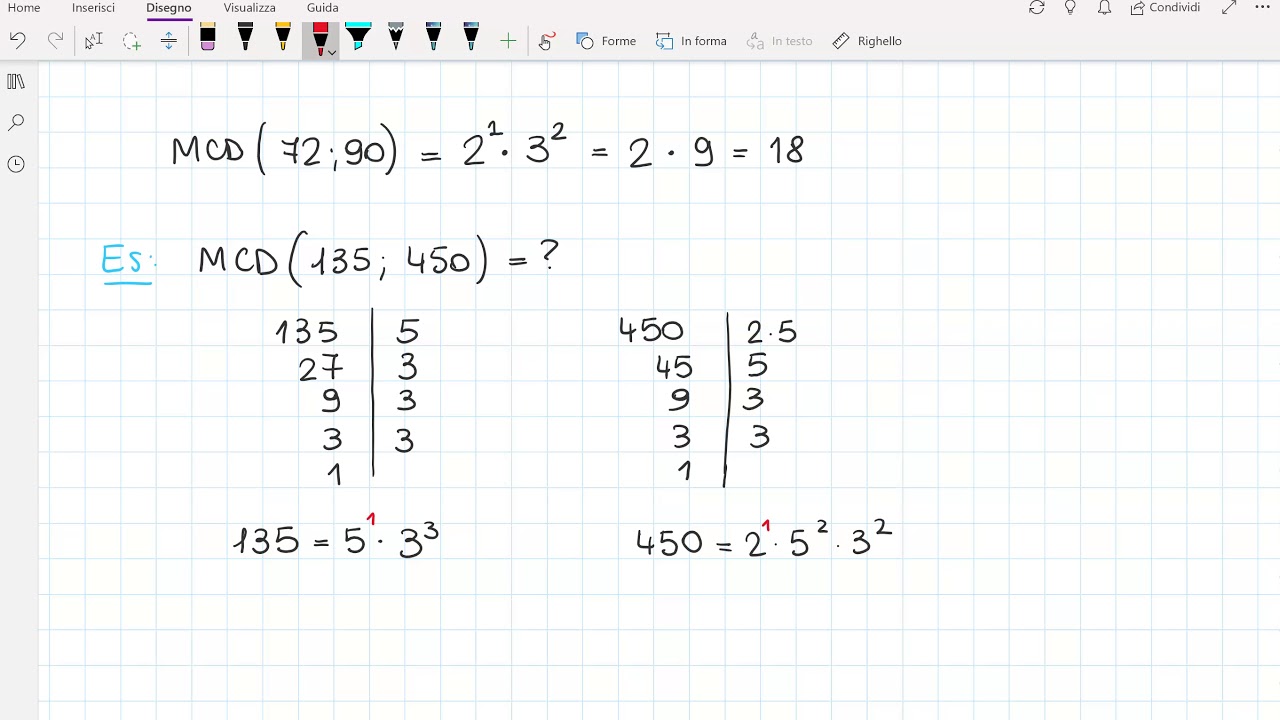 Home Inserisci Disegno Visualizza Guida Condividi
Forme In forma In testo Righello
MCD(72;90) = 2¹·3² = 2·9 = 18
Es: MCD(135; 450) = ?
135 | 5 450 | 2·5
27 | 3 45 | 5
9 | 3 9 | 3
3 | 3 3 | 3
1 | 1 |
135 = 5¹·3³ 450 = 2¹·5²·3²